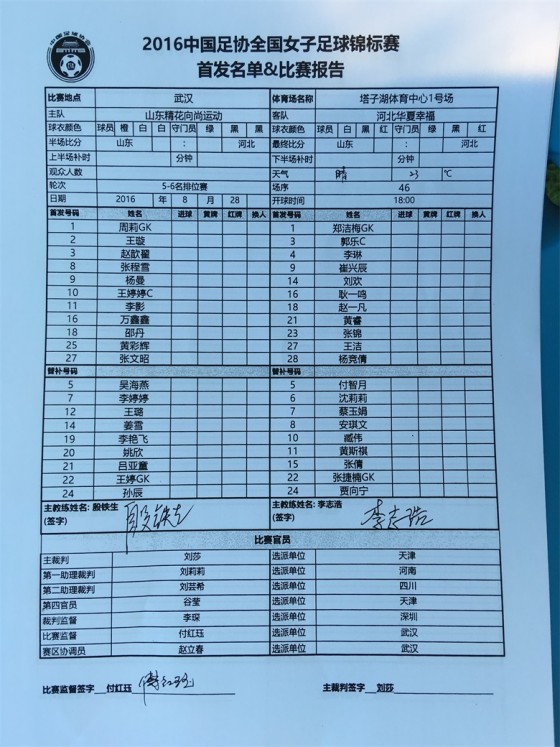 中国足球协会
2016中国足协全国女子足球锦标赛
首发名单&比赛报告
比赛地点 武汉 体育场名称 塔子湖体育中心1号场
主队 山东精花向尚运动 客队 河北华夏幸福
球衣颜色 球员 橙 白 白 守门员 绿 黑 黑 球衣颜色 球员 白 黑 红 守门员 绿 黑 红
半场比分 山东 : 河北 最终比分 山东 : 河北
上半场补时 分钟 下半场补时 分钟
观众人数 天气 晴 23 ℃
轮次 5-6名排位赛 场序 46
日期 2016 年 8 月 28 开球时间 18:00
首发号码 姓名 进球 黄牌 红牌 换人 首发号码 姓名 进球 黄牌 红牌 换人
1 周莉GK 1 郑洁梅GK
2 王璇 3 郭乐C
3 赵歆翟 4 李琳
8 张程雪 9 崔兴辰
9 杨曼 14 刘欢
10 王婷婷C 16 耿一鸣
11 李影 18 赵一凡
16 万鑫鑫 21 黄睿
18 邵丹 23 张锦
25 黄彩辉 27 王洁
27 张文昭 28 杨竞倩
替补号码 替补号码
5 吴海燕 5 付智月
7 李婷婷 6 沈莉莉
12 王璐 7 蔡玉娟
14 姜雪 8 安琪文
19 李艳飞 10 臧伟
20 姚欣 11 黄斯祺
21 吕亚童 15 张倩
22 王婷GK 22 张捷楠GK
24 孙辰 24 贾向宁
主教练姓名: 殷铁生 主教练姓名: 李志浩
(签字) 殷铁生 (签字) 李志浩
比赛官员
主裁判 刘莎 选派单位 天津
第一助理裁判 刘莉莉 选派单位 河南
第二助理裁判 刘芸希 选派单位 四川
第四官员 谷莹 选派单位 天津
裁判监督 李琛 选派单位 深圳
比赛监督 付红珏 选派单位 武汉
赛区协调员 赵立春 选派单位 武汉
比赛监督签字 付红珏 傅红珏 主裁判签字 刘莎